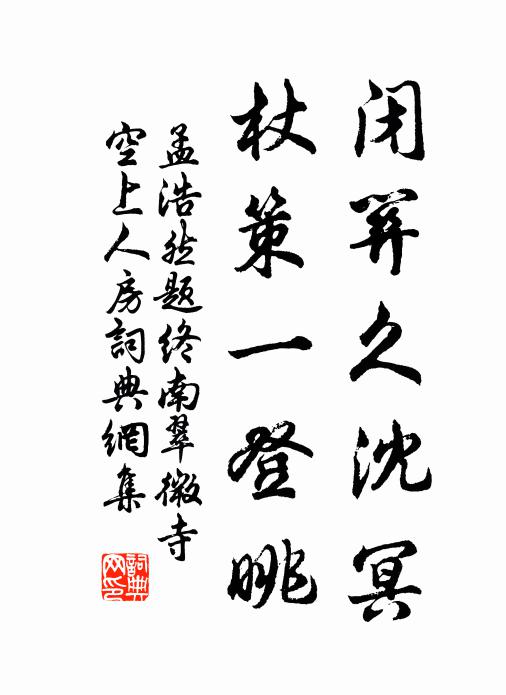 闭关久沈冥
杖策一登眺
孟浩然题终南翠微寺
空上人房詞典網集
詞典网印